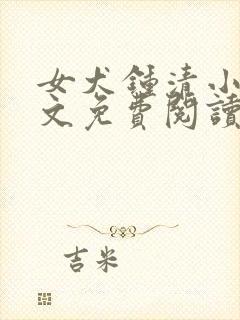 女犬鍾清小
文免費閱讀
吉米